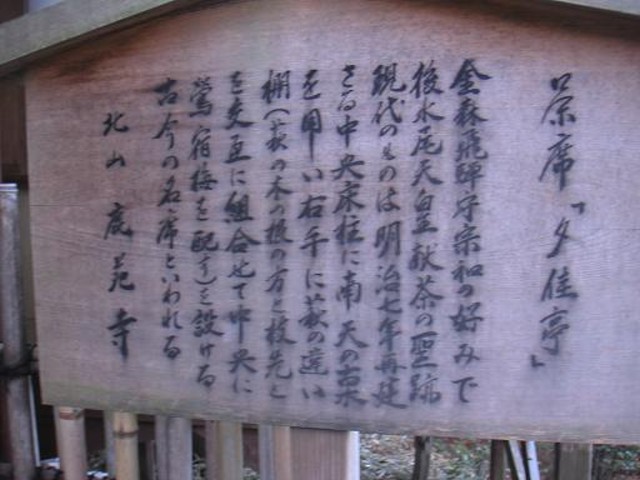 茶席「夕佳亭」
金森飛騨守宗和の好みで
後水尾天皇献茶の聖跡
現代のものは明治七年再建
さる中央床柱に南天の古木
を用い右手に萩の違い
棚(萩の木の根の方と枝先と
を交互に組合せて中央に
鶯宿梅を配す)を設ける
古今の名席といわれる
北山 鹿苑寺